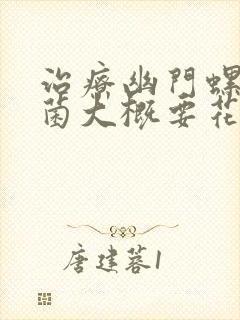 治療幽門螺
菌大概要花
唐建蓉1